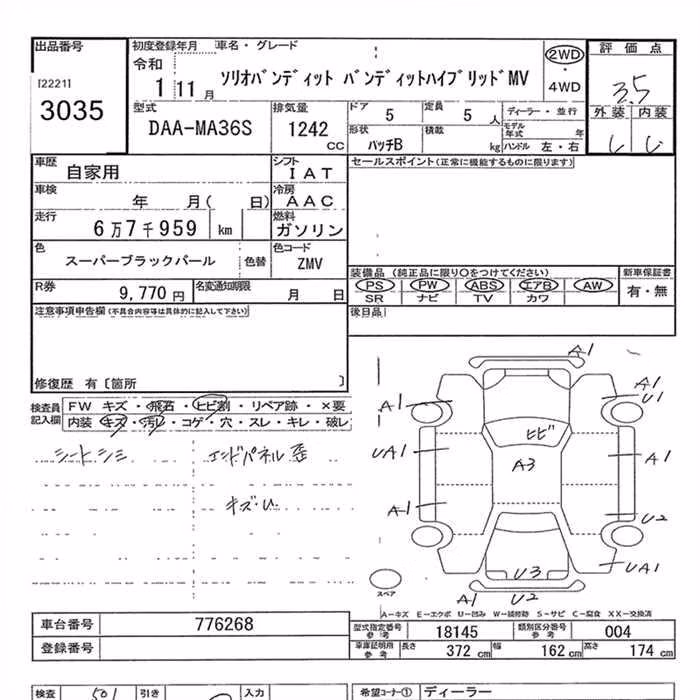 出品番号
[2221]
3035
初度登録年月 車名・グレード
令和
1 11月 ソリオバンディット バンディットハイブリッドMV
2WD
・
4WD
評価点
3.5
外装 内装
型式
DAA-MA36S
排気量
1242 CC
ドア 5
定員 5 人
ディーラー・並行
形状 ハッチB
積載 kg
モデル年式 年
ハンドル 左・右
車歴 自家用
シフト IAT
セールスポイント(正常に機能するものに限ります)
車検 年 月( 日)
冷房 AAC
走行 6万7千959 km
燃料 ガソリン
色 スーパーブラックパール 色替
色コード ZMV
装備品 (純正品に限り○をつけてください) 新車保証書
PS PW ABS エアB AW 有・無
SR ナビ TV カワ
R券 9,770円
名変通知期限 月 日
後日品
注意事項申告欄(不具合内容等は具体的に記入して下さい)
修復歴 有〔箇所 〕
検査員記入欄
FW キズ・飛石・ヒビ割・リペア跡・×要
内装 キズ・汚レ・コゲ・穴・スレ・キレ・破レ
シートシミ エンドパネル歪
キズ・U
A1
A1
A1
U1
ヒビ
UA1
A3
A1
A1
U2
U3
UA1
A1 U2
スペア
A-キズ E-エクボ U-凹み W-補修跡 S-サビ C-腐食 XX-交換済
車台番号 776268
登録番号
型式指定番号 参考 18145
類別区分番号 参考 004
車庫証明用 参考 長さ 372 cm 幅 162 cm 高さ 174 cm
検査 501 引き 入力
希望コーナー① ディーラー